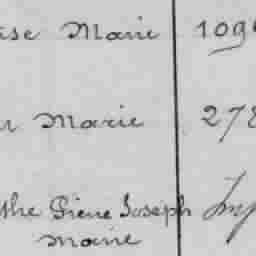 Marie 109
Marie 278
the Pierre Joseph
Marie